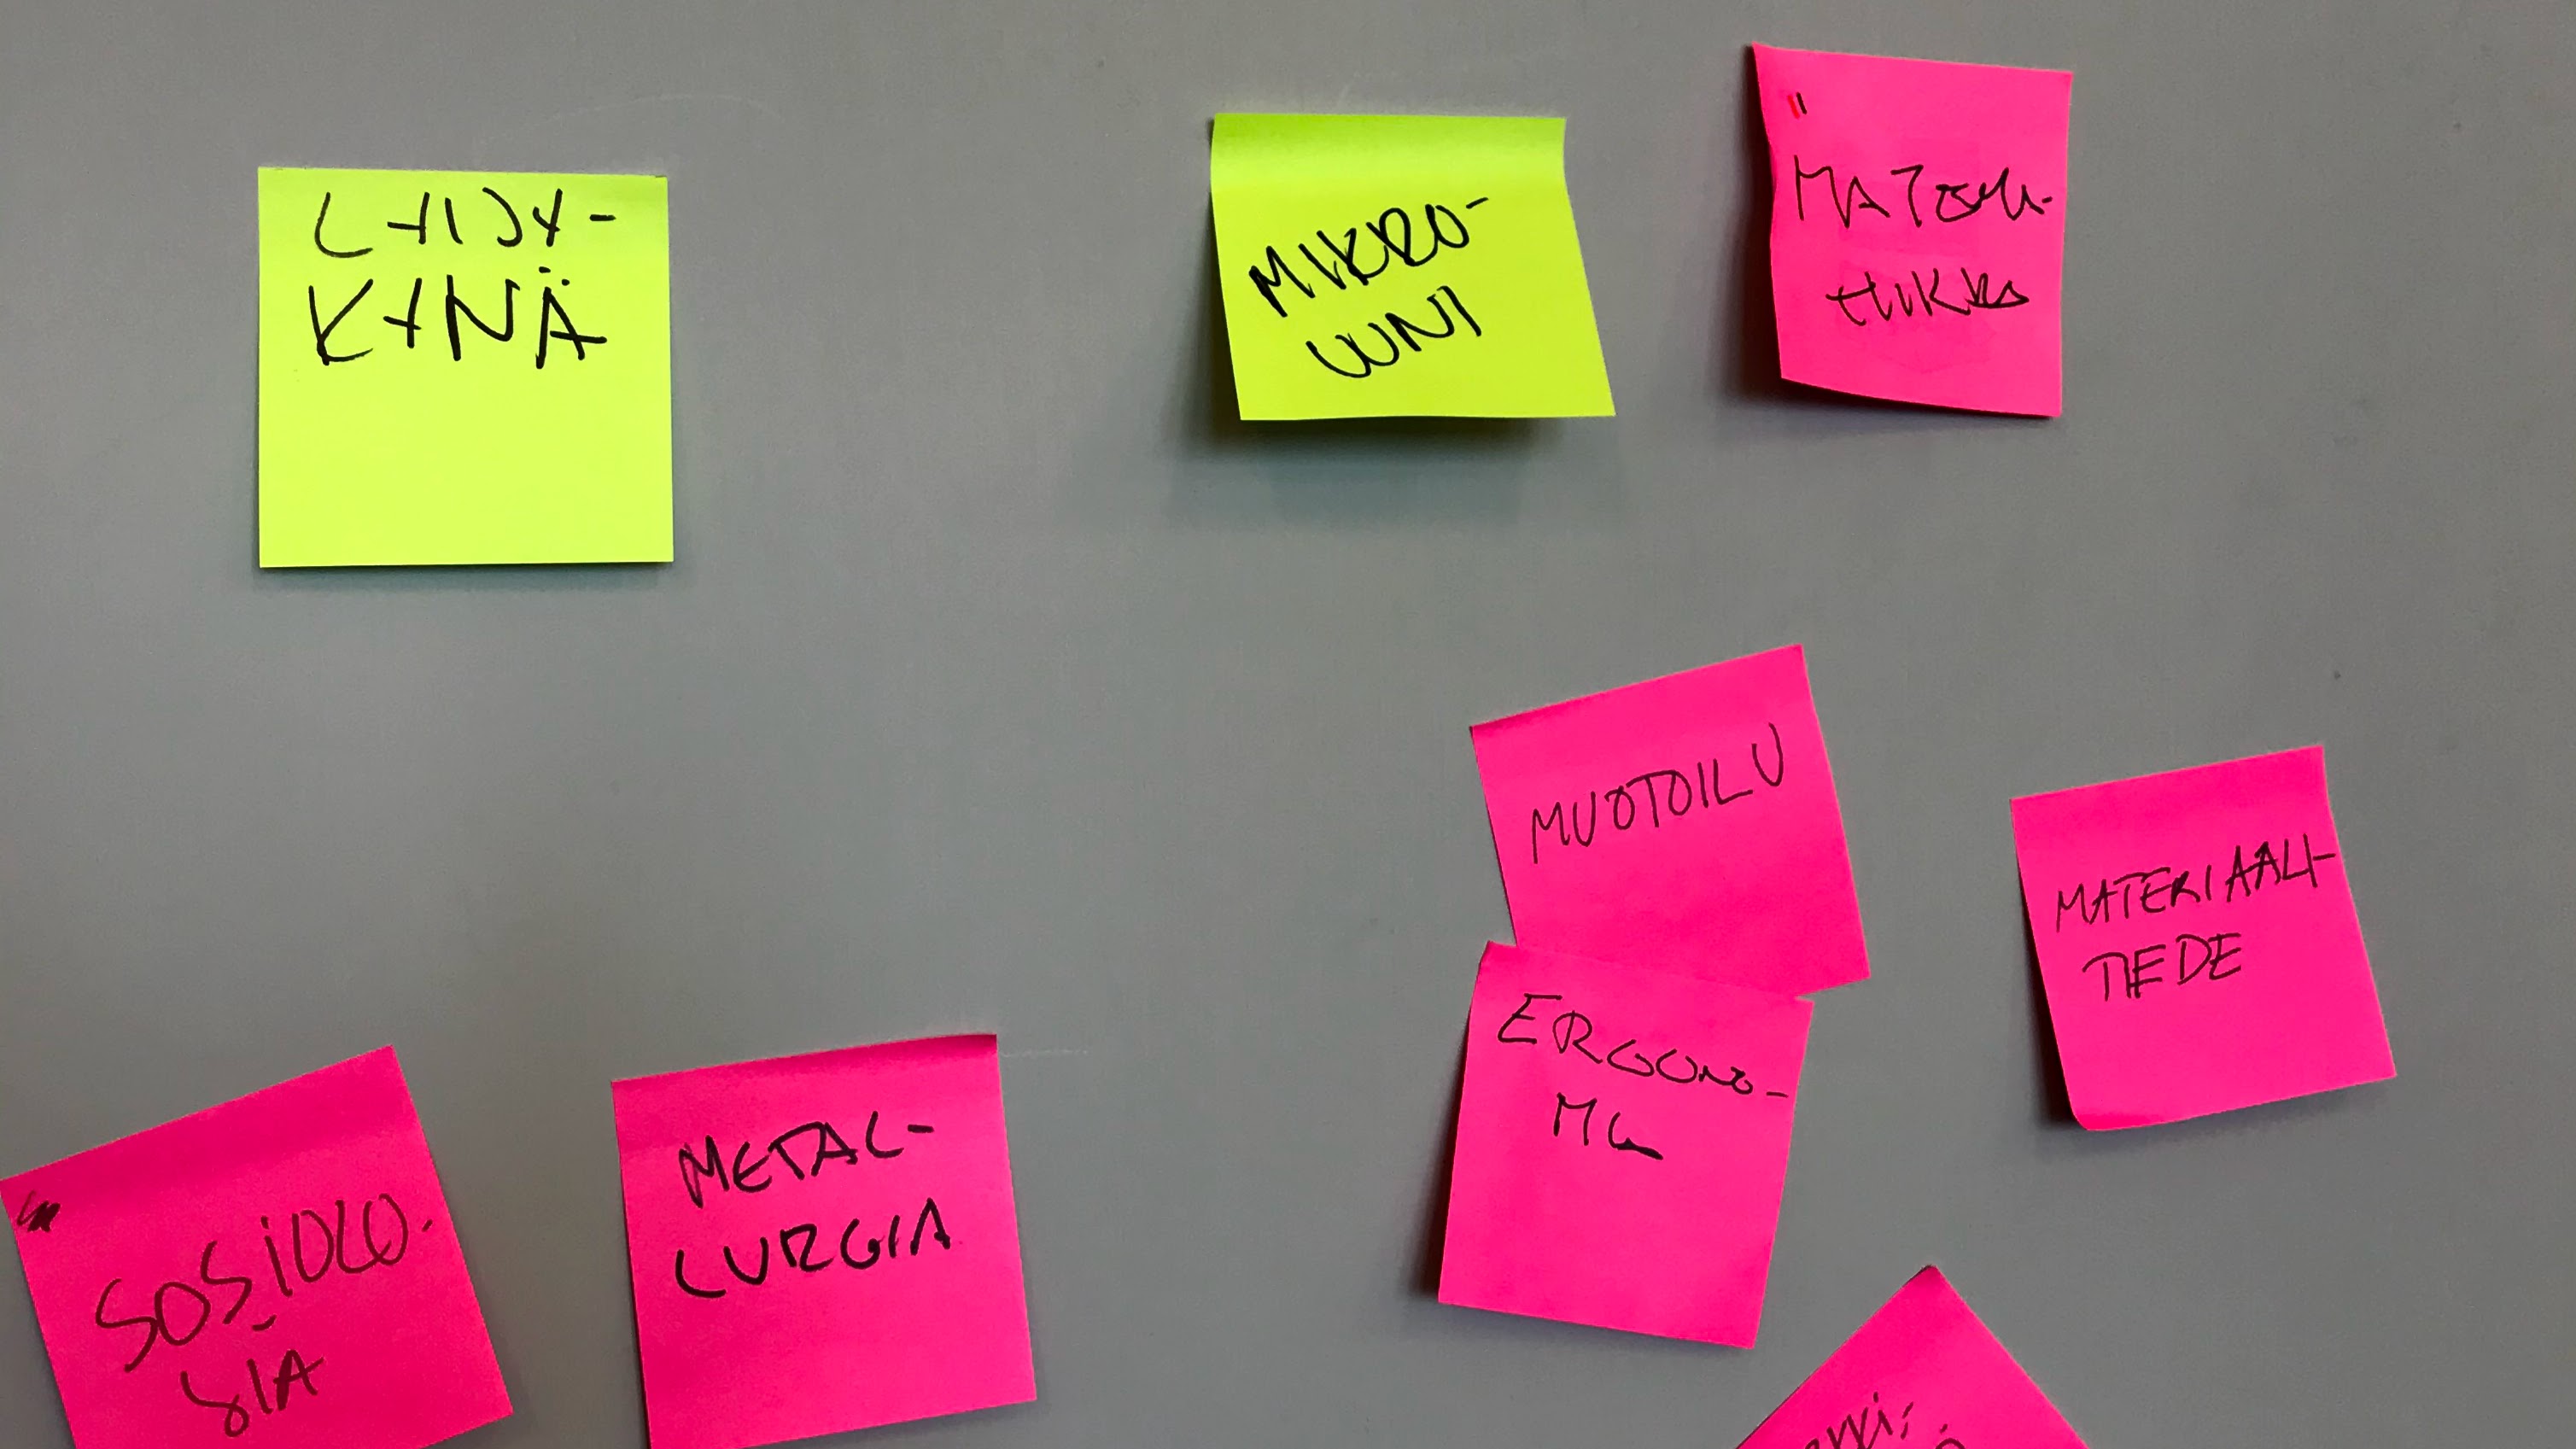 LYIJY-
KYNÄ
MIKRO-
UUNI
MATEMA-
TIIKKA
MUOTOILU
MATERIAALI-
TIEDE
ERGONO-
MIA
SOSIOLO-
GIA
METAL-
LURGIA